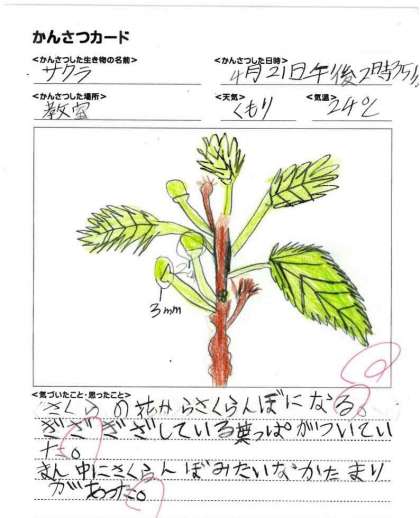 かんさつカード
<かんさつした生き物の名前>
サクラ
<かんさつした日時>
4月21日午後2時35分
<かんさつした場所>
教室
<天気>
くもり
<気温>
24℃
3mm
<気づいたこと・思ったこと>
さくらの花からさくらんぼになる。
ぎざぎざしている葉っぱがついてい
た。
まん中にさくらんぼみたいなかたまり
があった。